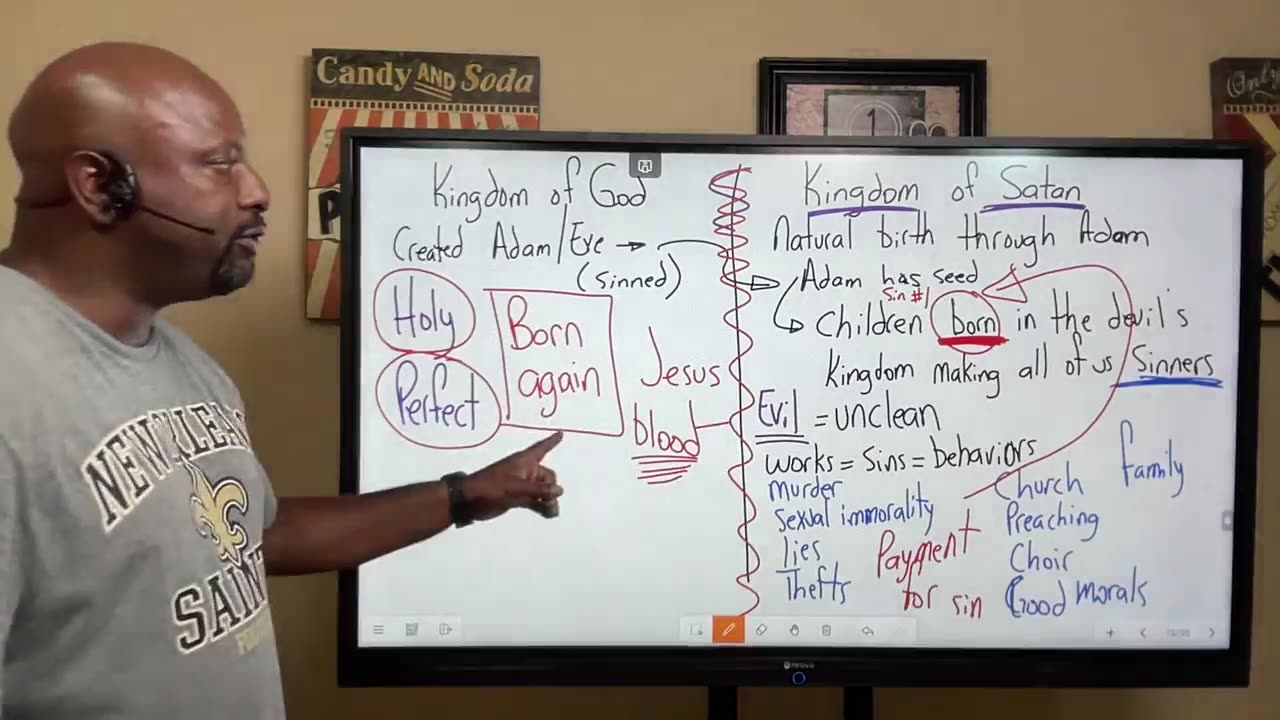 Candy AND Soda
Only
1
Kingdom of God
Created Adam/Eve →
(sinned)
Holy
Perfect
Born
again
Jesus
blood
Kingdom of Satan
Natural birth through Adam
Adam has seed
Sin #1
Children born in the devil's
Kingdom making all of us Sinners
Evil = unclean
works = Sins = behaviors
murder
sexual immorality
lies
Thefts
Payment
for sin
Church
Preaching
Choir
Good morals
family
NEW ORLEANS
SAINTS